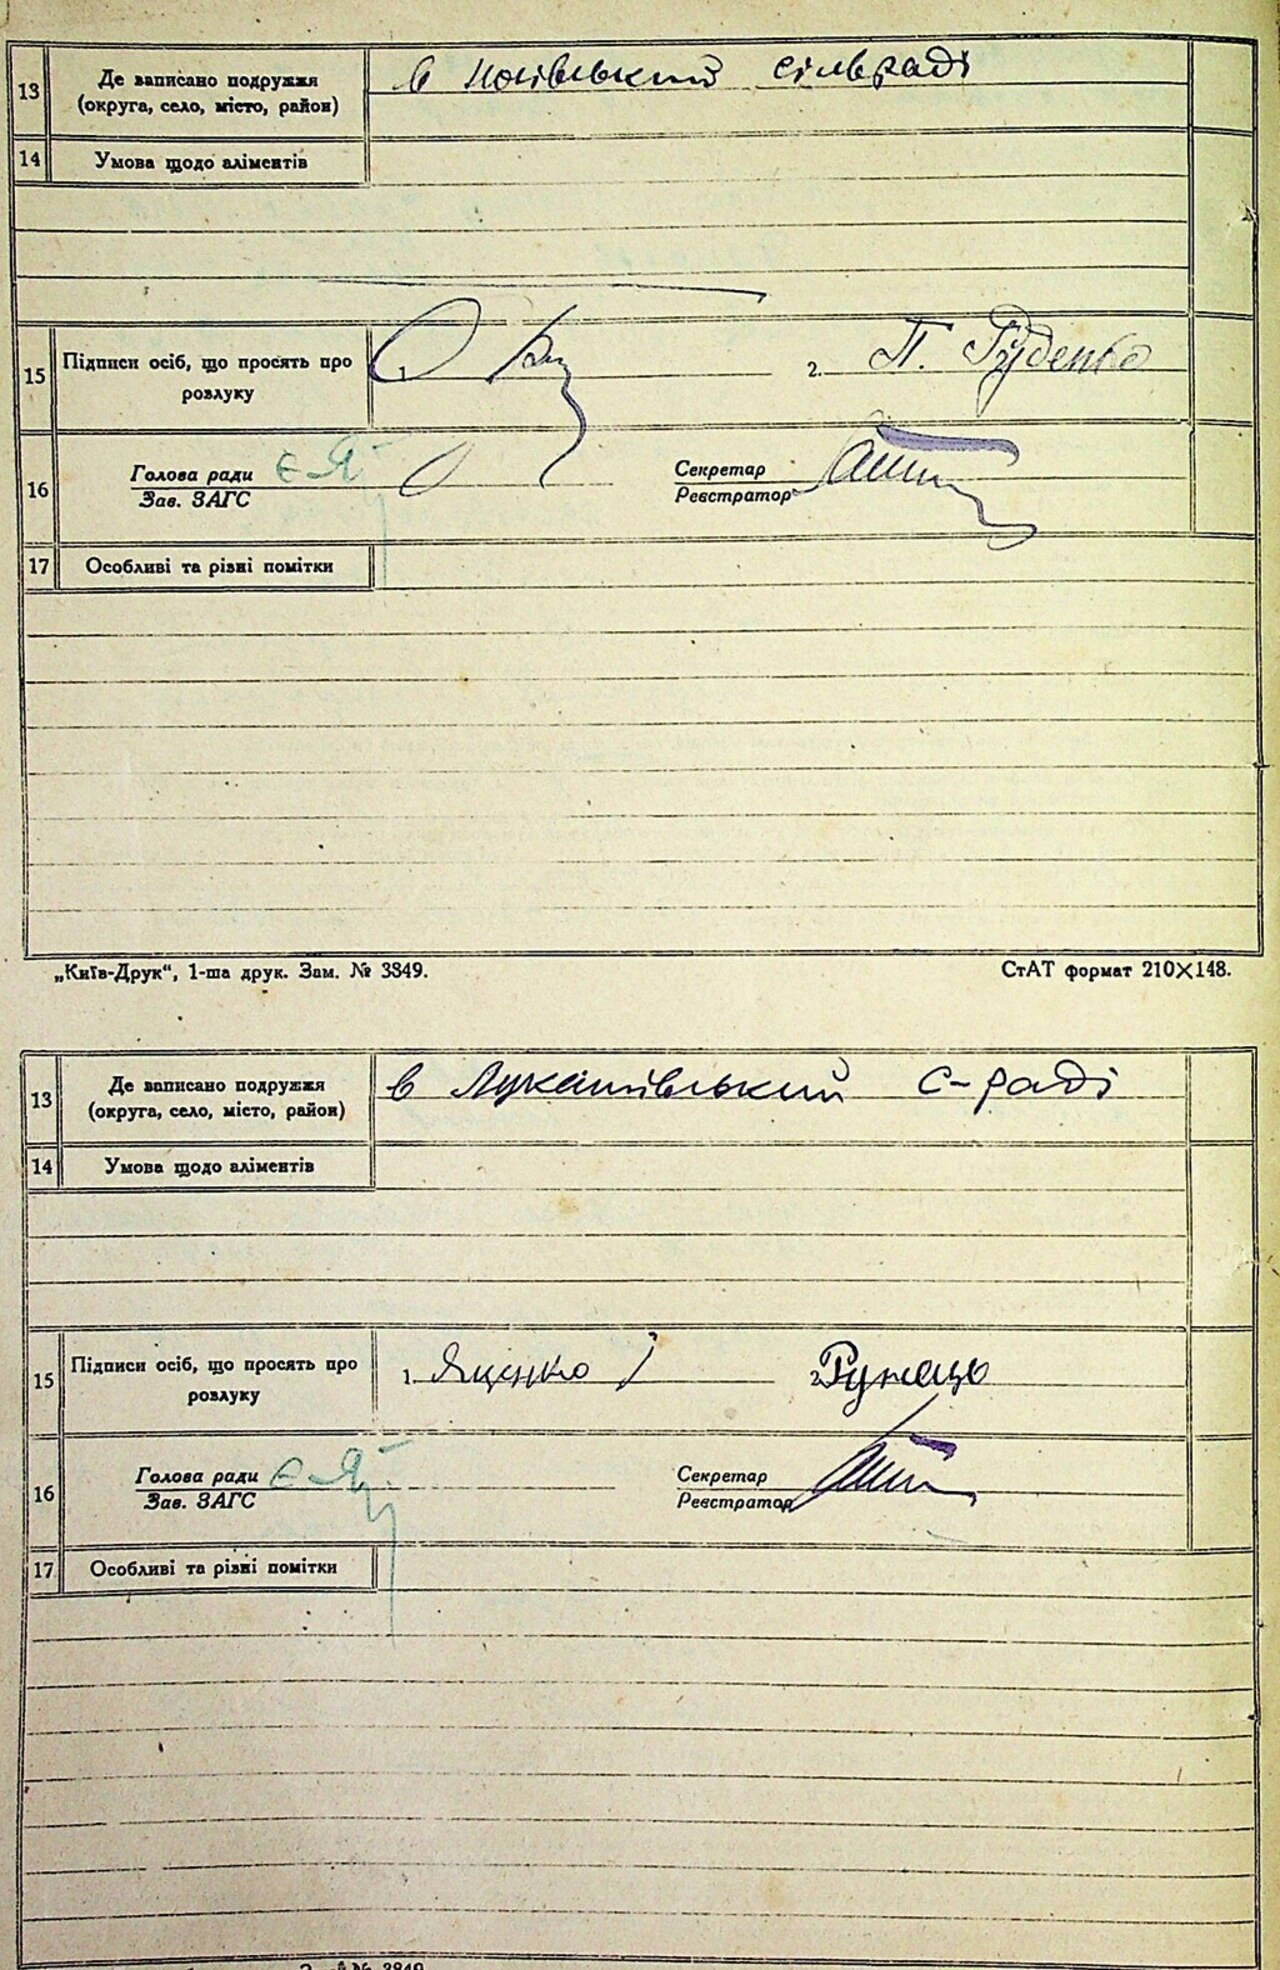 13 Де записано подружжя в Носівський сільраді
(округа, село, місто, район)
14 Умова щодо аліментів
15 Підписи осіб, що просять про розлуку 1. 2. П. Руденко
16 Голова ради Секретар
Зав. ЗАГС Реєстратор
17 Особливі та різні помітки
„Київ-Друк“, 1-ша друк. Зам. № 3849. СтАТ формат 210×148.
13 Де записано подружжя в Лукашівський с-раді
(округа, село, місто, район)
14 Умова щодо аліментів
15 Підписи осіб, що просять про розлуку 1. Яценко І 2.
16 Голова ради Секретар
Зав. ЗАГС Реєстратор
17 Особливі та різні помітки
№ 3849